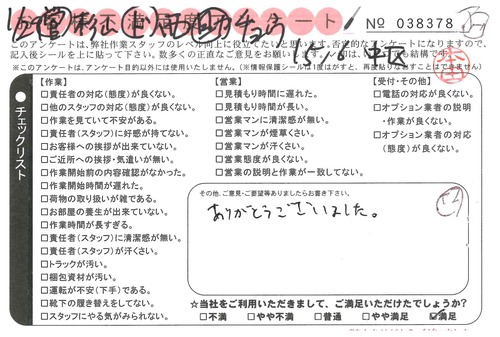 不満足度チェックシート
No 038378
このアンケートは、弊社作業スタッフのレベル向上に役立てたいと思います。否定的なアンケートになりますので
記入後シールを上に貼って下さい。数多くの正直なご意見をお願い
※このアンケートは、アンケート目的以外には使用いたしません。(※情報保護シールは1度はがすと、再度貼りなおすことはできません)
チェックリスト
【作業】
□責任者の対応(態度)が良くない。
□他のスタッフの対応(態度)が良くない。
□作業を見ていて不安がある。
□責任者(スタッフ)に好感が持てない。
□お客様への挨拶が出来ていない。
□ご近所への挨拶・気遣いが無い。
□作業開始前の内容確認がなかった。
□作業開始時間が遅れた。
□荷物の取り扱いが雑である。
□お部屋の養生が出来ていない。
□作業時間が長すぎる。
□責任者(スタッフ)に清潔感が無い。
□責任者(スタッフ)が汗くさい。
□トラックが汚い。
□梱包資材が汚い。
□運転が不安(下手)である。
□靴下の履き替えをしてない。
□スタッフにやる気がみられない。
【営業】
□見積もり時間に遅れた。
□見積もり時間が長い。
□営業マンに清潔感が無い。
□営業マンが煙草くさい。
□営業マンが汗くさい。
□営業態度が良くない。
□営業の説明と作業が一致してない。
【受付・その他】
□電話の対応が良くない。
□オプション業者の説明
・作業が良くない。
□オプション業者の対応
(態度)が良くない。
その他、ご意見・ご要望等ありましたらお書き下さい。
ありがとうございました。
☆当社をご利用いただきまして、ご満足いただけたでしょうか?
□不満 □やや不満 □普通 □やや満足 ☑満足